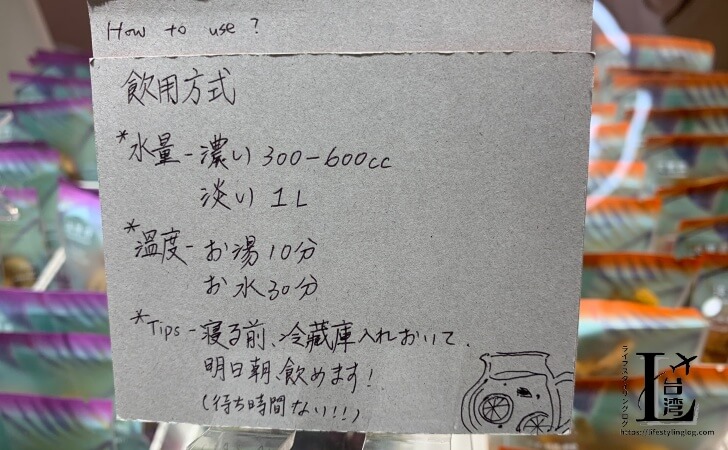 How to use?
飲用方式
*水量-濃い 300-600cc
淡い 1L
*溫度-お湯10分
お水30分
*Tips-寝る前、冷藏庫入れおいて、
明日朝、飲めます!
(待ち時間ない!!)
ライフスタイリングログ
L
台湾
https://lifestylinglog.com